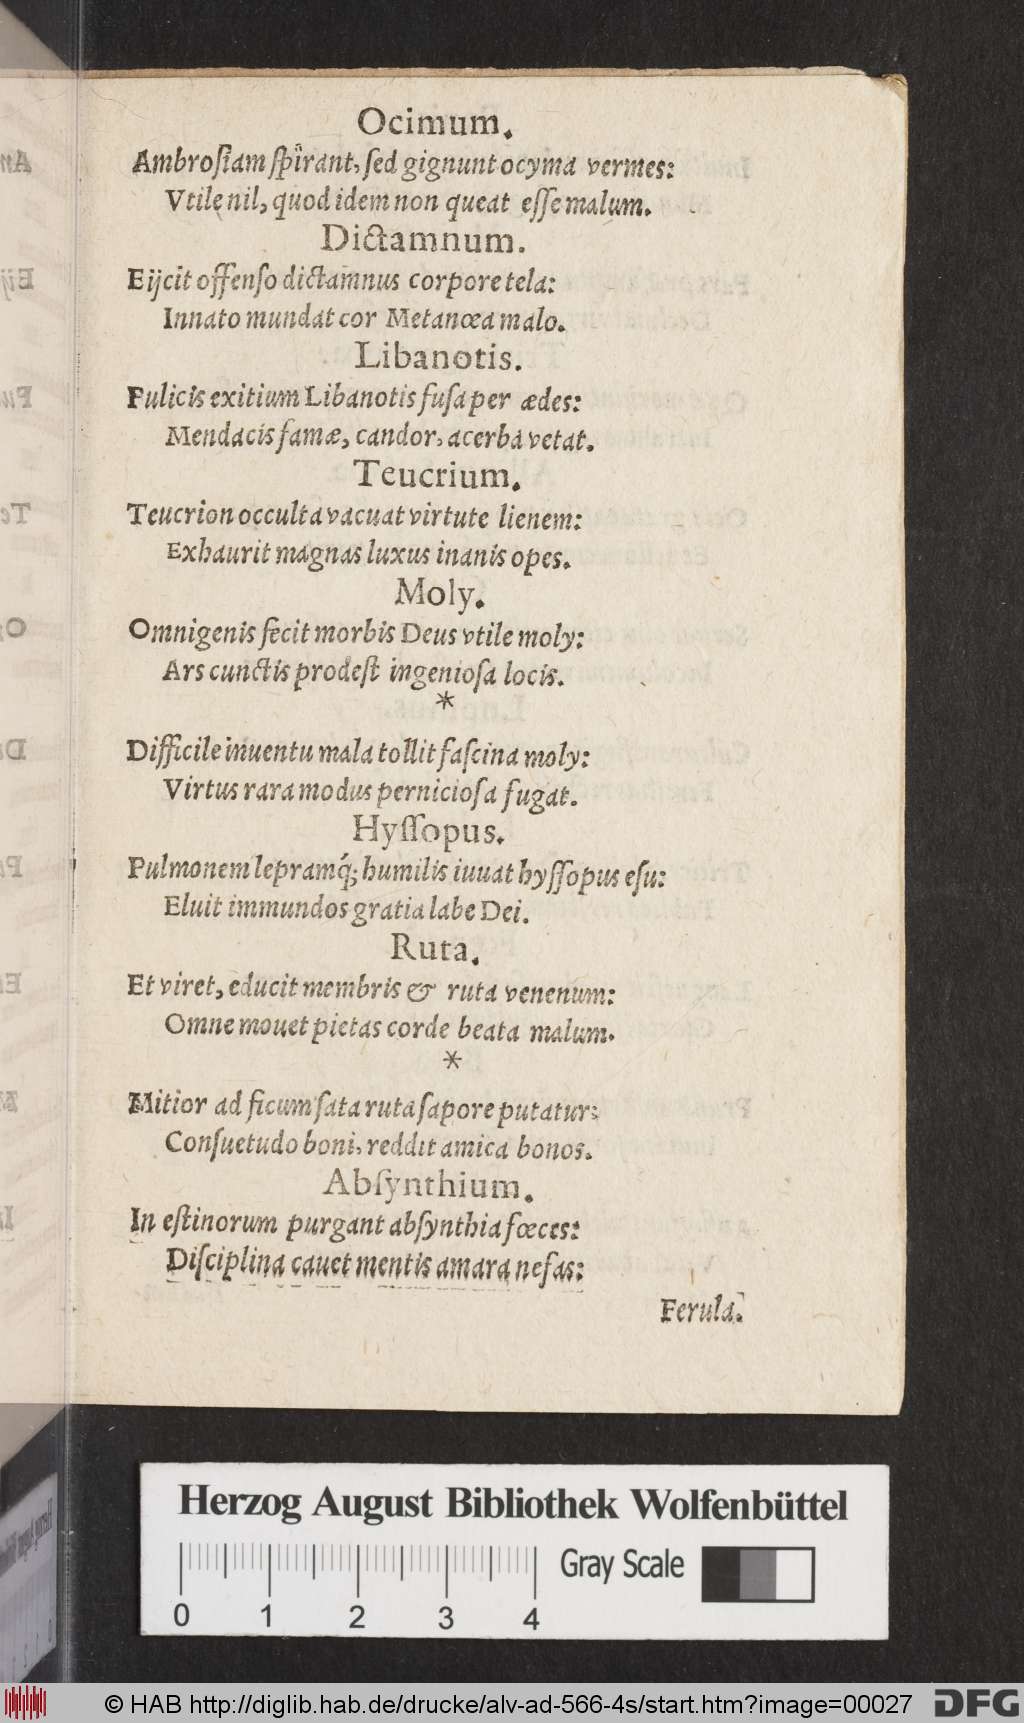 Ocimum.
Ambroſiam ſpirant, ſed gignunt ocyma vermes:
Vtile nil, quod idem non queat eſſe malum.
Dictamnum.
Eijcit offenſo dictamnus corpore tela:
Innato mundat cor Metanœa malo.
Libanotis.
Pulicis exitium Libanotis fuſa per ædes:
Mendacis famæ, candor, acerba vetat.
Teucrium.
Teucrion occulta vacuat virtute lienem:
Exhaurit magnas luxus inanis opes.
Moly.
Omnigenis fecit morbis Deus vtile moly:
Ars cunctis prodeſt ingenioſa locis.
*
Difficile inuentu mala tollit faſcina moly:
Virtus rara modus pernicioſa fugat.
Hyſſopus.
Pulmonem lepramq́; humilis iuuat hyſſopus eſu:
Eluit immundos gratia labe Dei.
Ruta.
Et viret, educit membris & ruta venenum:
Omne mouet pietas corde beata malum.
*
Mitior ad ficum ſata ruta ſapore putatur:
Conſuetudo boni, reddit amica bonos.
Abſynthium.
In eſtinorum purgant abſynthia fœces:
Diſciplina cauet mentis amara nefas:
Ferula.
Herzog August Bibliothek Wolfenbüttel
Gray Scale
0 1 2 3 4
© HAB http://diglib.hab.de/drucke/alv-ad-566-4s/start.htm?image=00027
DFG